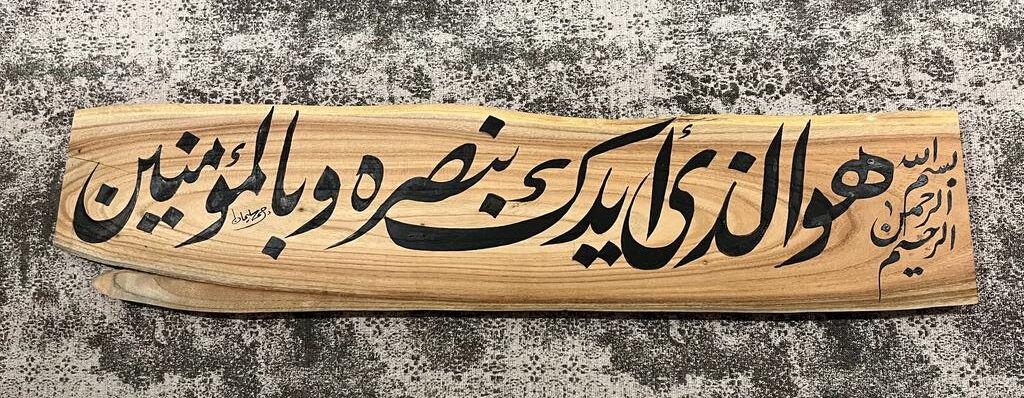 بسم الله
الرحمن
الرحيم
هو الذی أیدک بنصره و بالمؤمنین